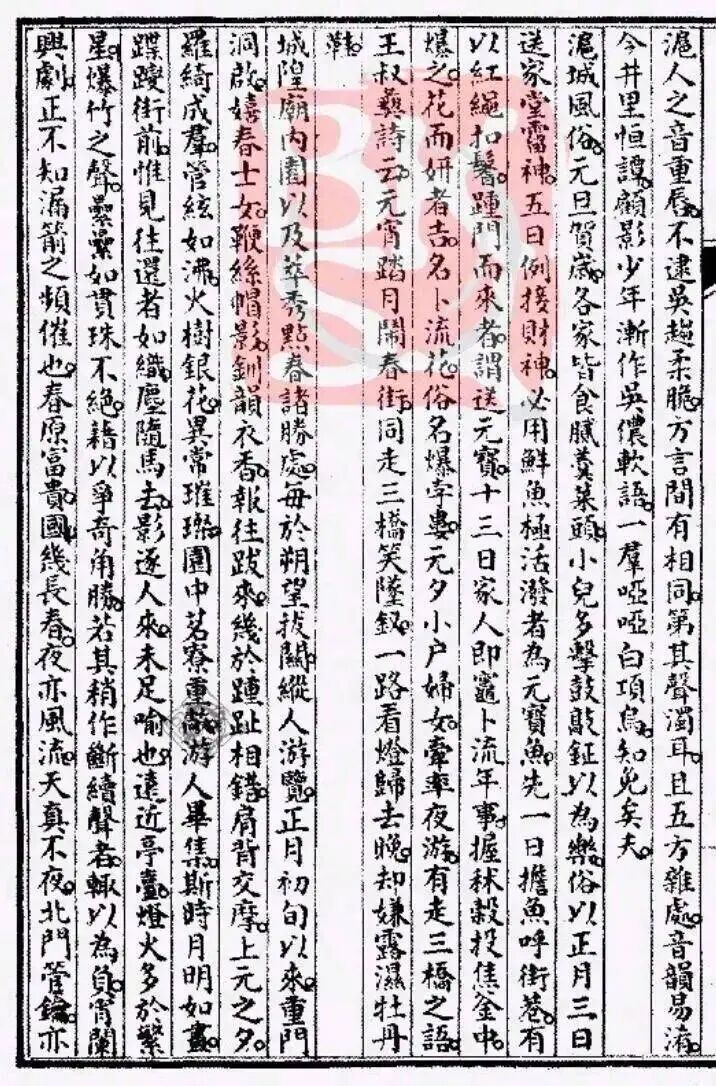 滬人之音重唇不逮吳趨柔脆方言間有相同第其聲濁耳且五方雜處音韻易淆
今井里恒譚顧影少年漸作吳儂軟語一羣啞啞白項烏知免矣夫
滬城風俗元旦賀歲各家皆食膩羹菜頭小兒多擊鼓敲鉦以為樂俗以正月三日
送家堂竈神五日例接財神必用鮮魚極活潑者為元寶魚先一日擔魚呼街巷有
以紅繩扣鬐踵門而來者謂送元寶十三日家人即竈卜流年事握秫穀投焦釜中
爆之花而妍者吉名卜流花俗名爆孛婁元夕小户婦女牽率夜游有走三橋之語
王叔彝詩云元宵踏月鬧春街同走三橋笑墜釵一路看燈歸去晚却嫌露濕牡丹
鞋
城隍廟內園以及萃秀點春諸勝處每於朔望拔關縱人游覽正月初旬以來重門
洞啟嬉春士女鞭絲帽影釧韻衣香報往跋來幾於踵趾相錯肩背交摩上元之夕
羅綺成羣管絃如沸火樹銀花異常璀璨園中茗寮重敞游人畢集斯時月明如晝
蹀躞街前惟見往還者如織塵隨馬去影逐人來未足喻也遠近亭臺燈火多於繁
星爆竹之聲纍纍如貫珠不絕藉以爭奇角勝若其稍作斷續聲者輒以為負宵闌
興劇正不知漏箭之頻催也春原富貴國幾長春夜亦風流天真不夜北門管鑰亦